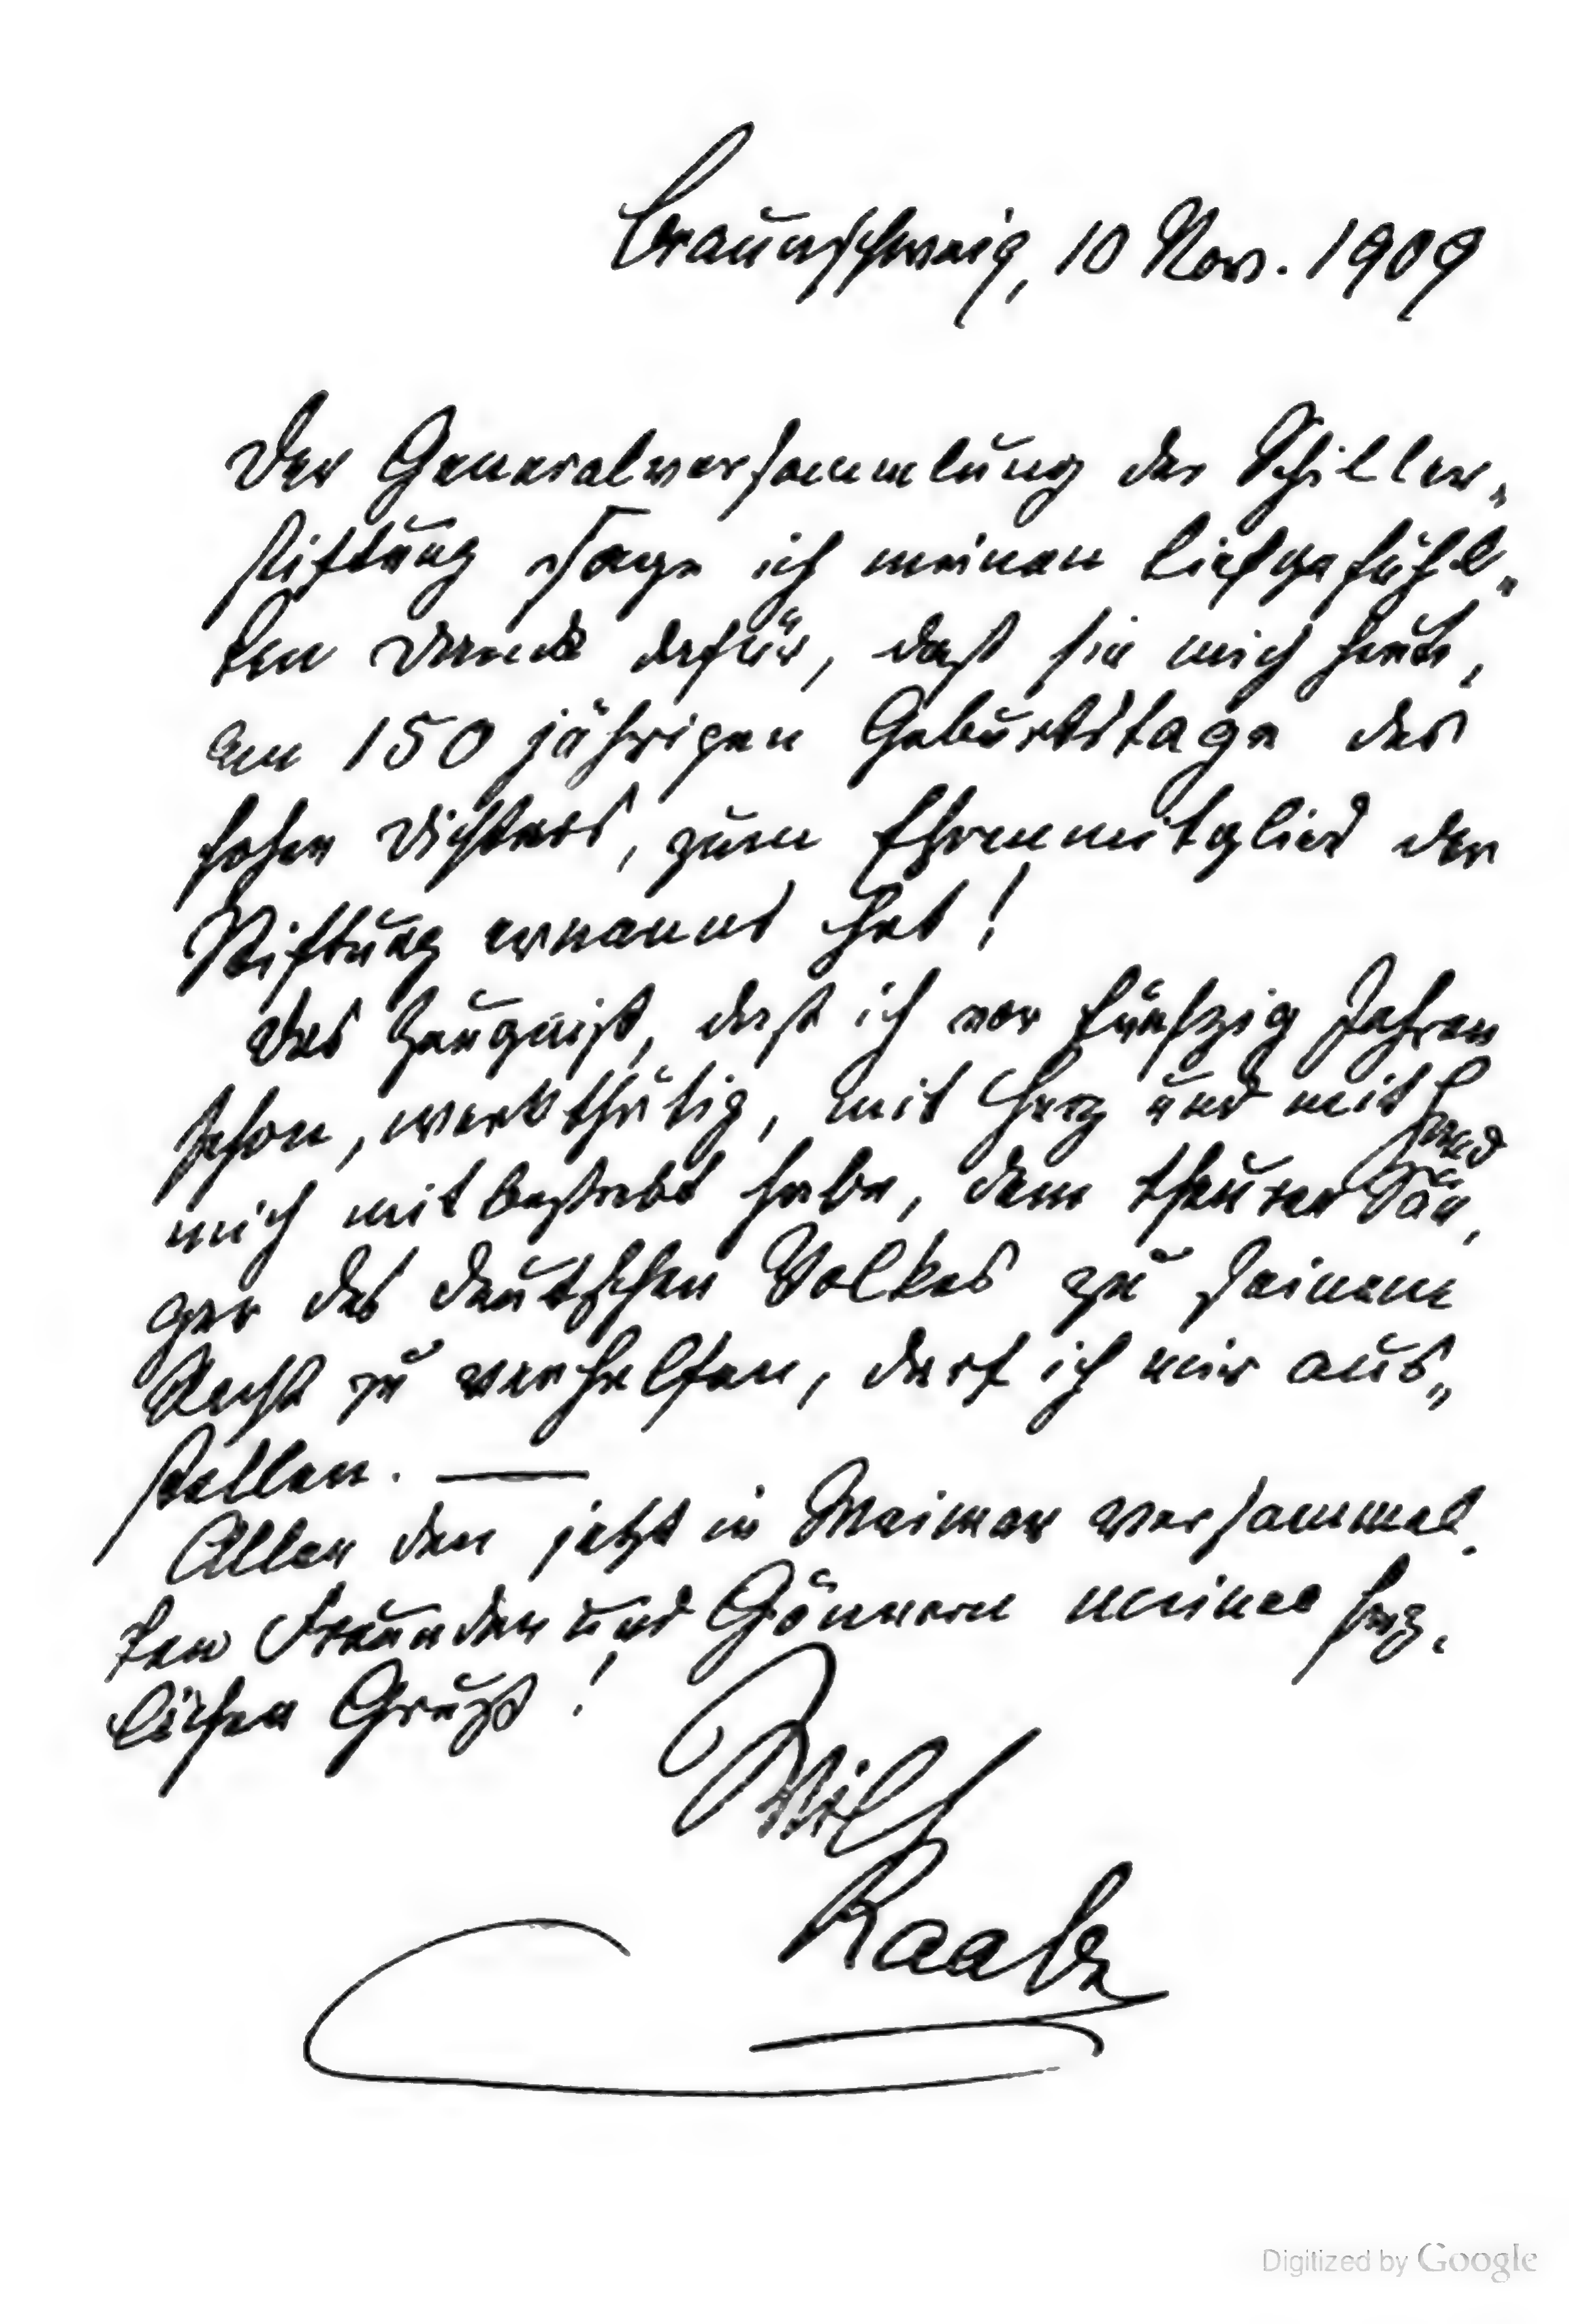 Braunschweig, 10 Nov. 1909
Der Generalversammlung der Schiller-
stiftung sage ich meinen tiefgefühl-
ten Dank dafür, daß sie mich heute,
am 150 jährigen Geburtstage des
hohen Dichters, zum Ehrenmitglied der
Stiftung ernannt hat!
Das Zeugniß, daß ich vor fünfzig Jahren
schon, werkthätig, mit Herz und mit Hand
mich mit bestrebt habe, dem theuren Sän-
ger des deutschen Volkes zu seinem
Recht zu verhelfen, darf ich mir aus-
stellen. —
Allen den jetzt in Weimar versammel-
ten Freunden und Gönnern meinen herz-
lichen Gruß!
Wilh
Raabe
Digitized by Google